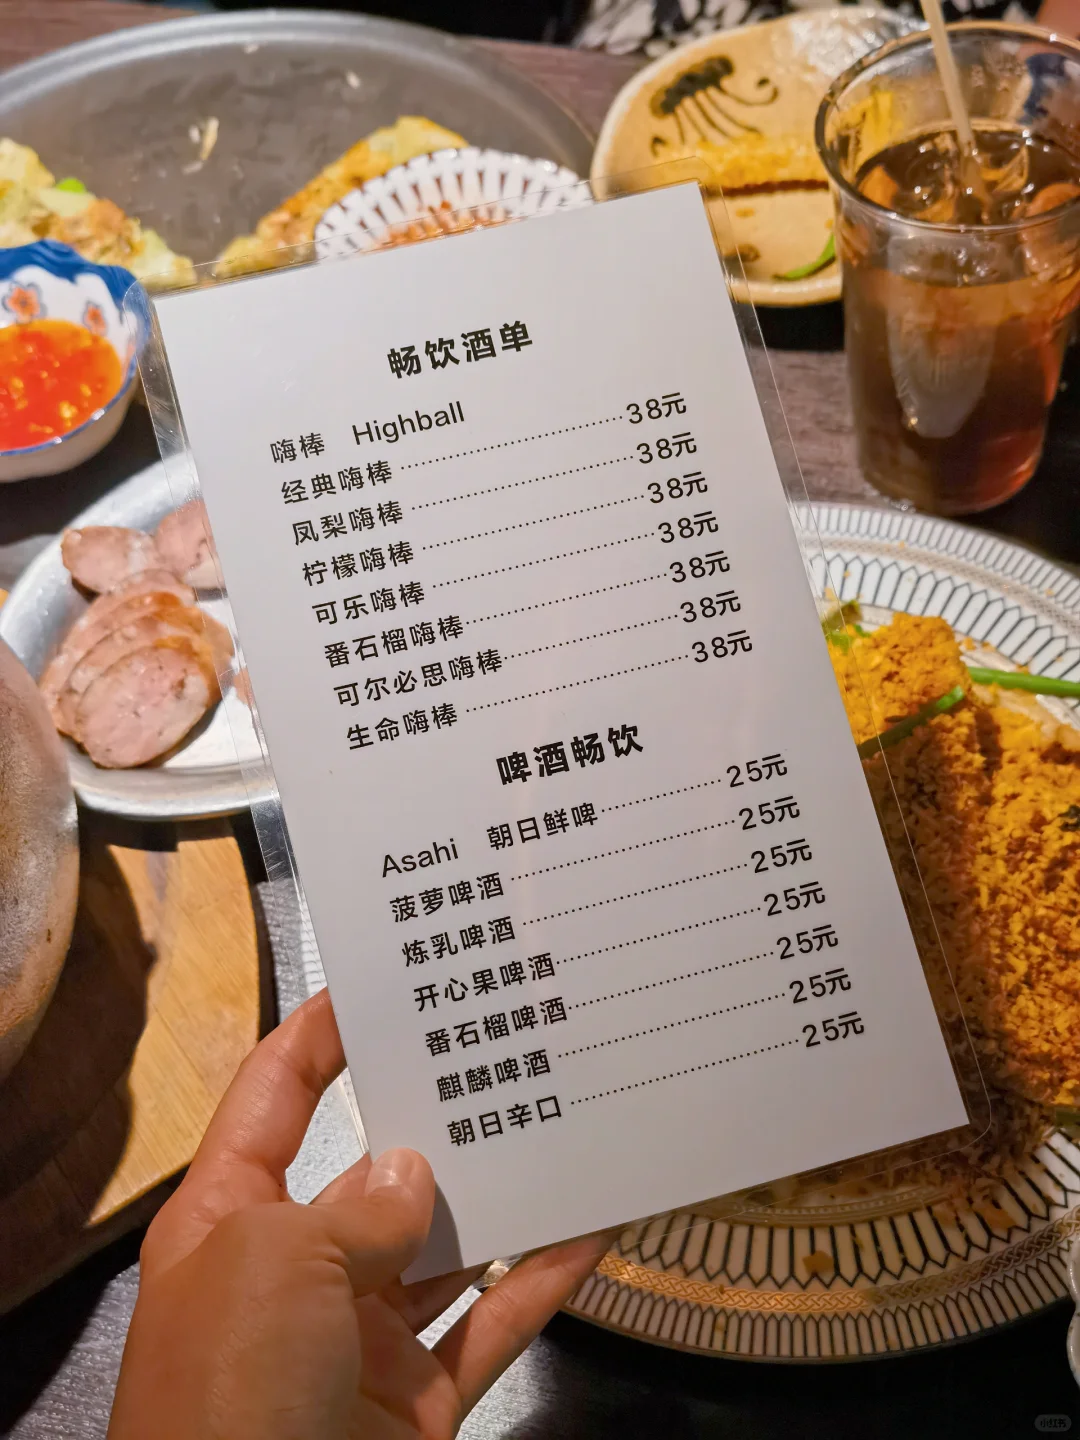 畅饮酒单
嗨棒 Highball
经典嗨棒························38元
凤梨嗨棒························38元
柠檬嗨棒························38元
可乐嗨棒························38元
番石榴嗨棒·····················38元
可尔必思嗨棒··················38元
生命嗨棒························38元
啤酒畅饮
Asahi 朝日鲜啤···············25元
菠萝啤酒························25元
炼乳啤酒························25元
开心果啤酒·····················25元
番石榴啤酒·····················25元
麒麟啤酒························25元
朝日辛口························25元
小红书